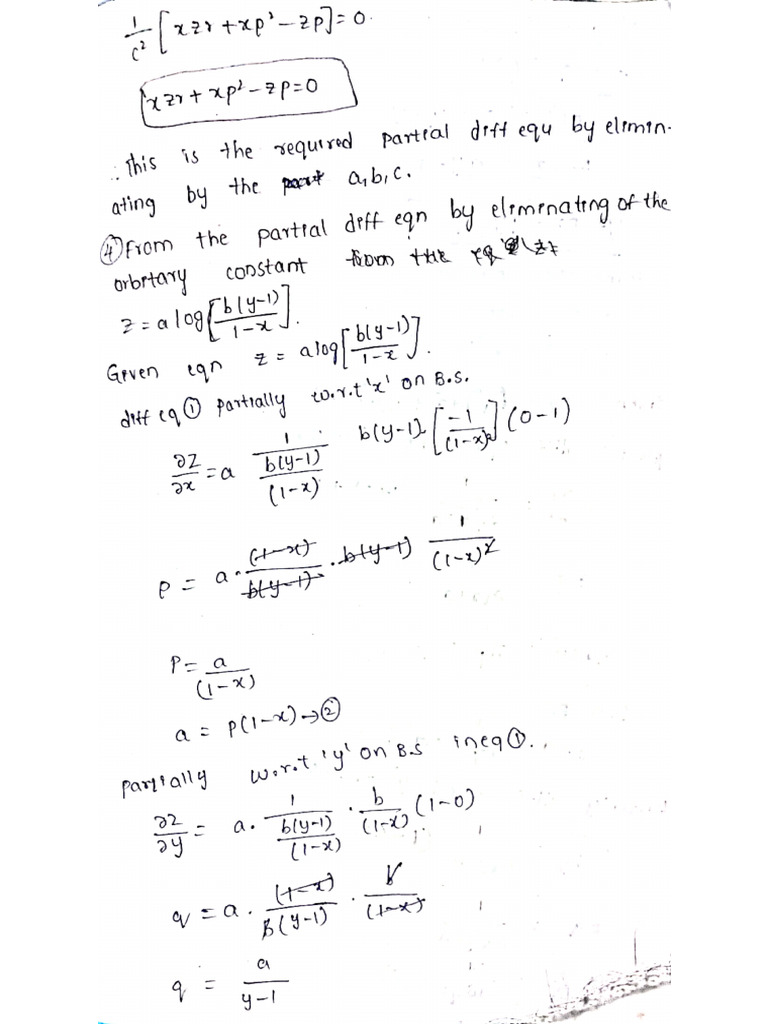 1/c² [xzr + xp² - zp] = 0.
xzr + xp² - zp = 0
∴ This is the required partial diff equ by elimin-
ating by the a, b, c.
④ From the partial diff eqn by eliminating of the
orbitary constant from the
z = a log [b(y-1)/1-x].
Given eqn z = a log [b(y-1)/1-x].
diff eq ① partially w.r.t 'x' on B.S.
∂z/∂x = a 1/(b(y-1)/(1-x)) b(y-1) [-1/(1-x)²] (0-1)
P = a · (1-x)/b(y-1) · b(y-1) 1/(1-x)²
P = a/(1-x)
a = P(1-x) → ②
partially w.r.t 'y' on B.S in eq ①.
∂z/∂y = a · 1/(b(y-1)/(1-x)) · b/(1-x) (1-0)
q = a · (1-x)/B(y-1) · b/(1-x)
q = a/y-1